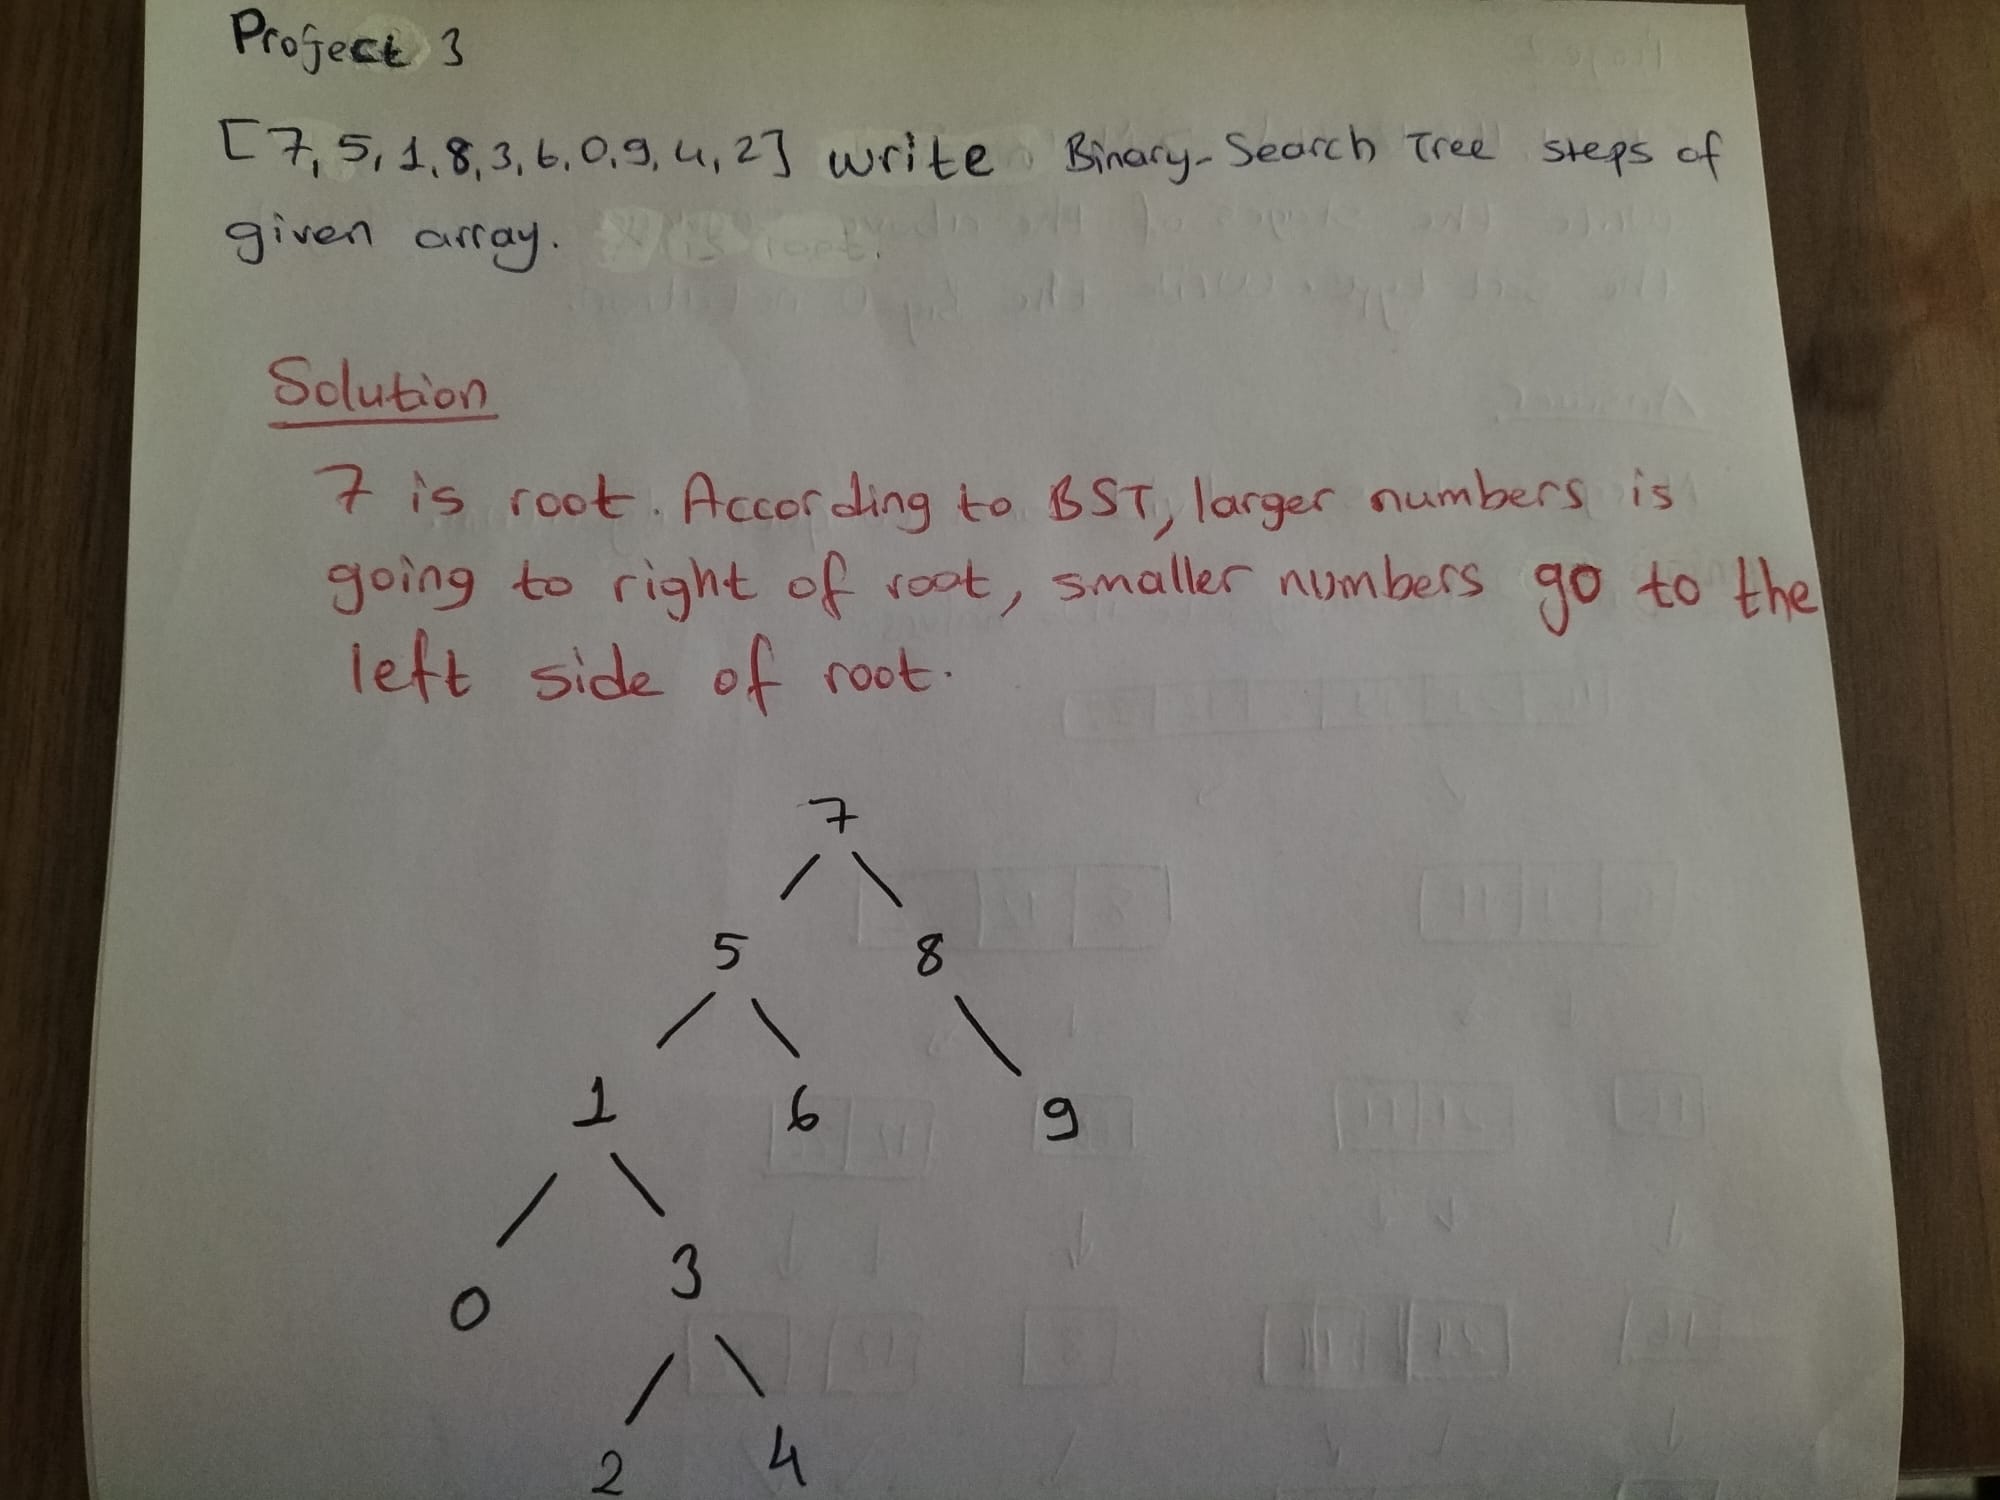 Project 3
[7,5,1,8,3,6,0,9,4,2] write Binary-Search Tree steps of
given array.
Solution
7 is root. According to BST, larger numbers is
going to right of root, smaller numbers go to the
left side of root.
7
5 8
1 6 9
0 3
2 4